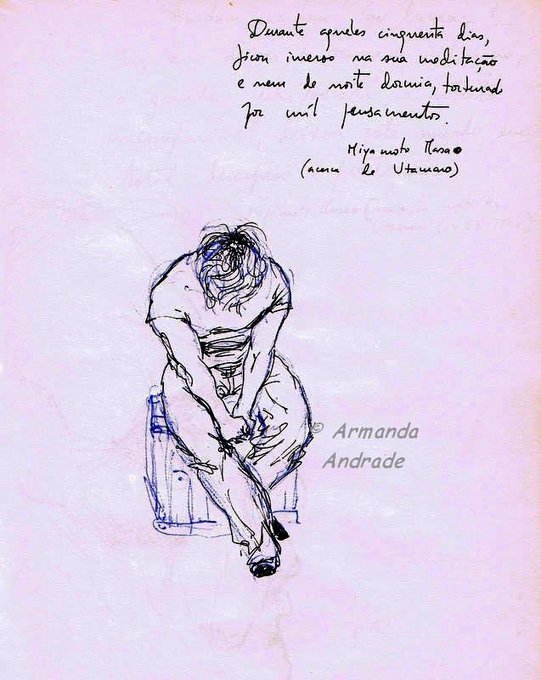 Durante aqueles cinquenta dias,
ficou imerso na sua meditação
e nem de noite dormia, torturado
por mil pensamentos.
Miyamoto Masao
(acerca de Utamaro)
© Armanda
Andrade